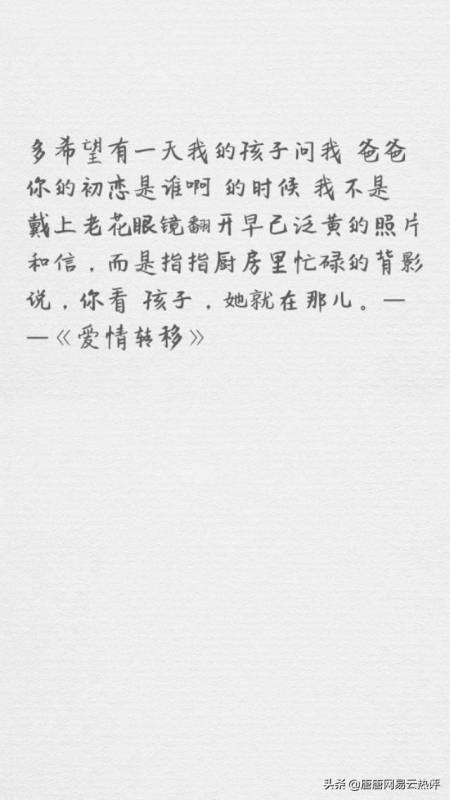 多希望有一天我的孩子问我 爸爸
你的初恋是谁啊 的时候 我不是
戴上老花眼镜翻开早已泛黄的照片
和信，而是指指厨房里忙碌的背影
说，你看 孩子，她就在那儿。—
—《爱情转移》
头条 @唐唐网易云热评